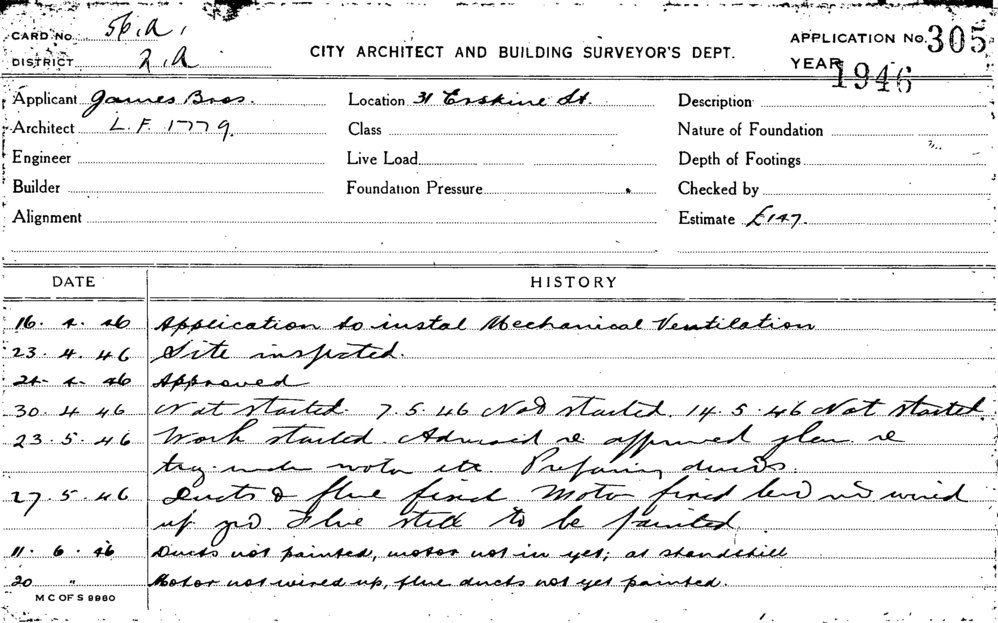 CARD No. 56.A.
DISTRICT 2.A
CITY ARCHITECT AND BUILDING SURVEYOR'S DEPT.
APPLICATION No. 305
YEAR 1946
Applicant James Bros. Location 31 Erskine St. Description
Architect L.F. 1779. Class Nature of Foundation
Engineer Live Load Depth of Footings
Builder Foundation Pressure Checked by
Alignment Estimate £147.
DATE HISTORY
16. 4. 46 Application to instal Mechanical Ventilation
23. 4. 46 Site inspected.
24. 4. 46 Approved
30. 4. 46 Not started 7. 5. 46 Not started. 14. 5. 46 Not started.
23. 5. 46 Work started. Advised re approved plan re
tray under motor etc. Preparing ducts.
27. 5. 46 Ducts & flue fixed Motor fixed wired
up Flue still to be painted
11. 6. 46 Ducts not painted, motor not in yet; at standstill
20 " Motor not wired up, flue ducts not yet painted.
M C OF S 9960